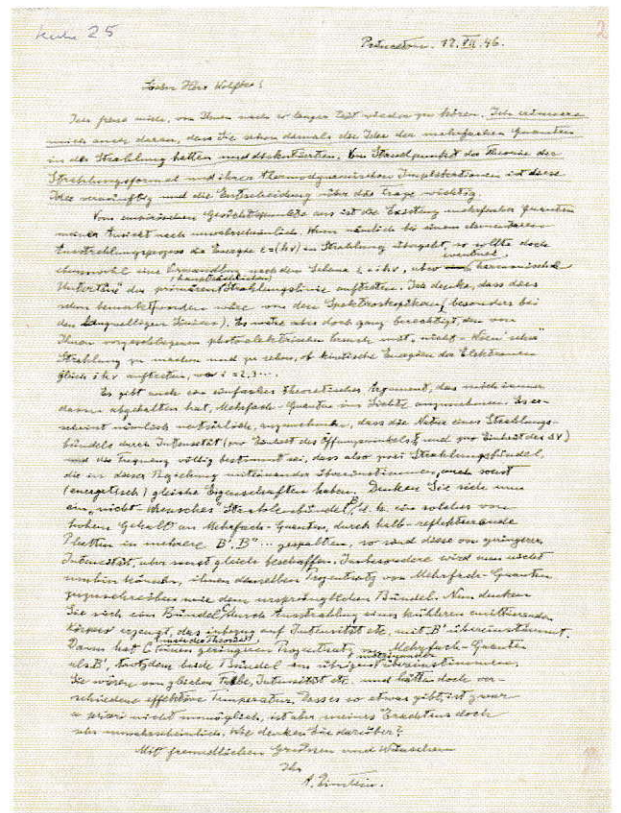 25
2
Princeton. 12. VII. 46.
Lieber Herr
Ich freue mich, von Ihnen nach so langer Zeit wieder zu hören. Ich erinnere
mich auch daran, dass Sie schon damals die Idee der mehrfachen Quanten
in der Strahlung hatten und diskutierten. Vom Standpunkt der Theorie der
Strahlungsformel und ihrer thermodynamischen Implikationen ist diese
Idee vernünftig und die Entscheidung über die Frage wichtig.
Vom empirischen Gesichtspunkte aus ist die Existenz mehrfacher Quanten
meiner Ansicht nach unwahrscheinlich. Wenn nämlich bei einem elementaren
Ausstrahlungsprozess die Energie ε = (hν) in Strahlung übergeht, so sollte doch
eventuell
eine Umwandlung nach dem Schema ε = i hν, aber harmonische
"Untertöne" der primären Strahlungslinie auftreten. Ich denke, dass dies
schon bemerkt worden wäre von den Spektroskopikern (besonders bei
den langwelligen Linien). Es wäre aber doch ganz berechtigt, den von
Ihnen vorgeschlagenen photoelektrischen Versuch mit "nicht-Wien'scher"
Strahlung zu machen und zu sehen, ob kinetische Energien der Elektronen
gleich i hν auftreten, wo i = 2, 3 ....
Es gibt auch ein einfaches theoretisches Argument, das mich immer
davon abgehalten hat, Mehrfach-Quanten im Lichte anzunehmen. Es er-
scheint nämlich natürlich, anzunehmen, dass die Natur eines Strahlungs-
bündels durch Intensität (pro Einheit des Öffnungswinkels und pro Einheit des Δν)
und die Frequenz völlig bestimmt sei, dass also zwei Strahlungsbündel,
die in dieser Beziehung miteinander übereinstimmen, auch sonst
(energetisch) gleiche Eigenschaften haben. Denken Sie sich nun
ein "nicht Wiensches" Strahlenbündel B, d. h. ein solches von
hohem Gehalt an Mehrfach-Quanten, durch halb-reflektierende
Platten in mehrere B', B'' ... gespalten, so sind diese von geringerer
Intensität, aber sonst gleich beschaffen. Insbesondere wird man nicht
umhin können, ihnen denselben Prozentsatz von Mehrfach-Quanten
zuzuschreiben wie dem ursprünglichen Bündel. Nun denken
Sie sich ein Bündel C durch Ausstrahlung eines kühleren emittierenden
Körpers erzeugt, das inbezug auf Intensität etc. mit B' übereinstimmt.
nach der Theorie
Dann hat C einen geringeren Prozentsatz von Mehrfach-Quanten
miteinander
als B', trotzdem beide Bündel im übrigen übereinstimmen.
Sie wären von gleicher Farbe, Intensität etc. und hätten doch ver-
schiedene effektive Temperatur. Dass es so etwas gibt, ist zwar
a priori nicht unmöglich, ist aber meines Erachtens doch
sehr unwahrscheinlich. Wie denken Sie darüber?
Mit freundlichen Grüssen und Wünschen
Ihr
A. Einstein.